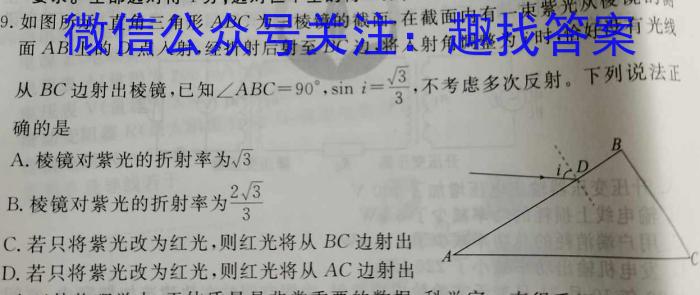 9.如图所示,直角三角形ABC为三棱镜的截面,在截面内有一束紫光从棱镜的侧
面AB上的D点入射,经折射后射至BC边,将入射角调整为i时,恰好没有光线
微信公众号关注:趣找答案
从BC边射出棱镜,已知∠ABC=90°,sin i=√3/3,不考虑多次反射。下列说法正
确的是
A.棱镜对紫光的折射率为√3
B.棱镜对紫光的折射率为2√3/3
C.若只将紫光改为红光,则红光将从BC边射出
D.若只将紫光改为红光,则红光将从AC边射出
B
i
D
A
C